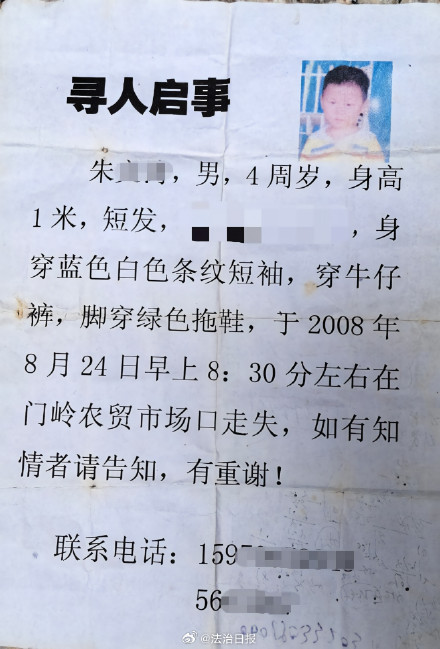 寻人启事
朱，男，4周岁，身高
1米，短发，，身
穿蓝色白色条纹短袖，穿牛仔
裤，脚穿绿色拖鞋，于2008年
8月24日早上8：30分左右在
门岭农贸市场口走失，如有知
情者请告知，有重谢！
联系电话：159
56
@法治日报